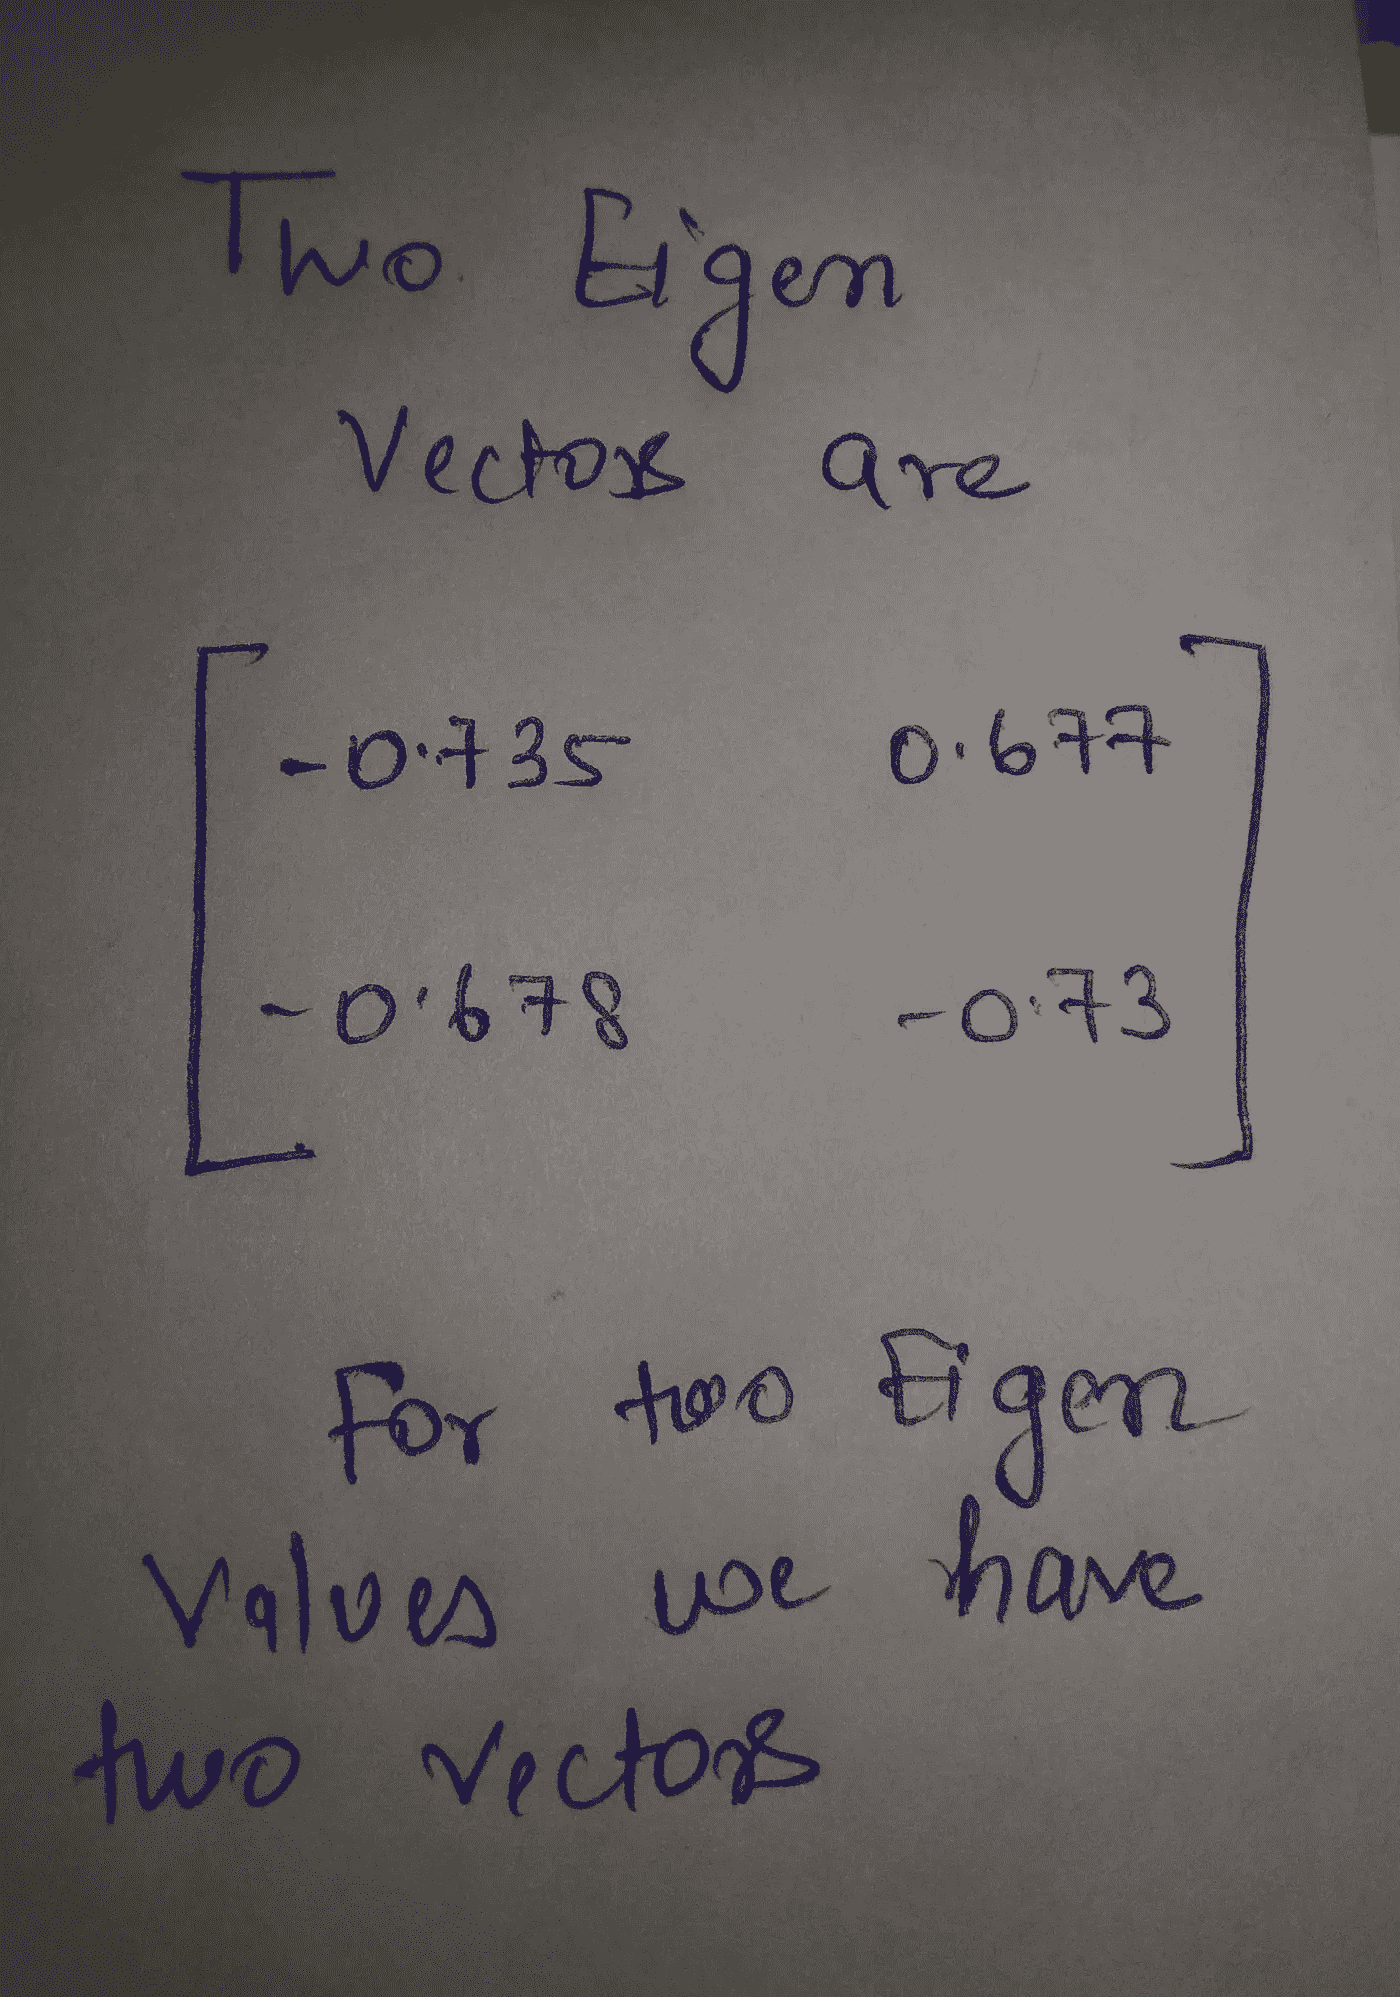 Two Eigen
Vectors are
-0.735 0.677
-0.678 -0.73
For two Eigen
Values we have
two vectors